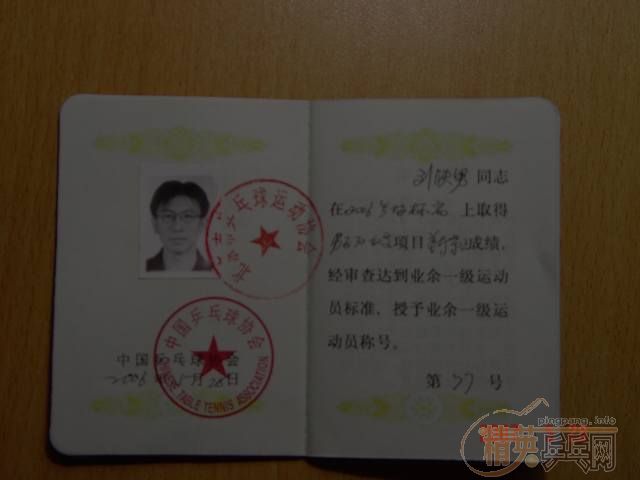 北京市乒乓球运动协会
中国乒乓球协会
CHINESE TABLE TENNIS ASSOCIATION
中国乒乓球协会
2006年 月28日
同志
在2006 上取得
项目 成绩，
经审查达到业余一级运动
员标准，授予业余一级运
动员称号。
第 77 号
pingpang.info
精英乒乓网